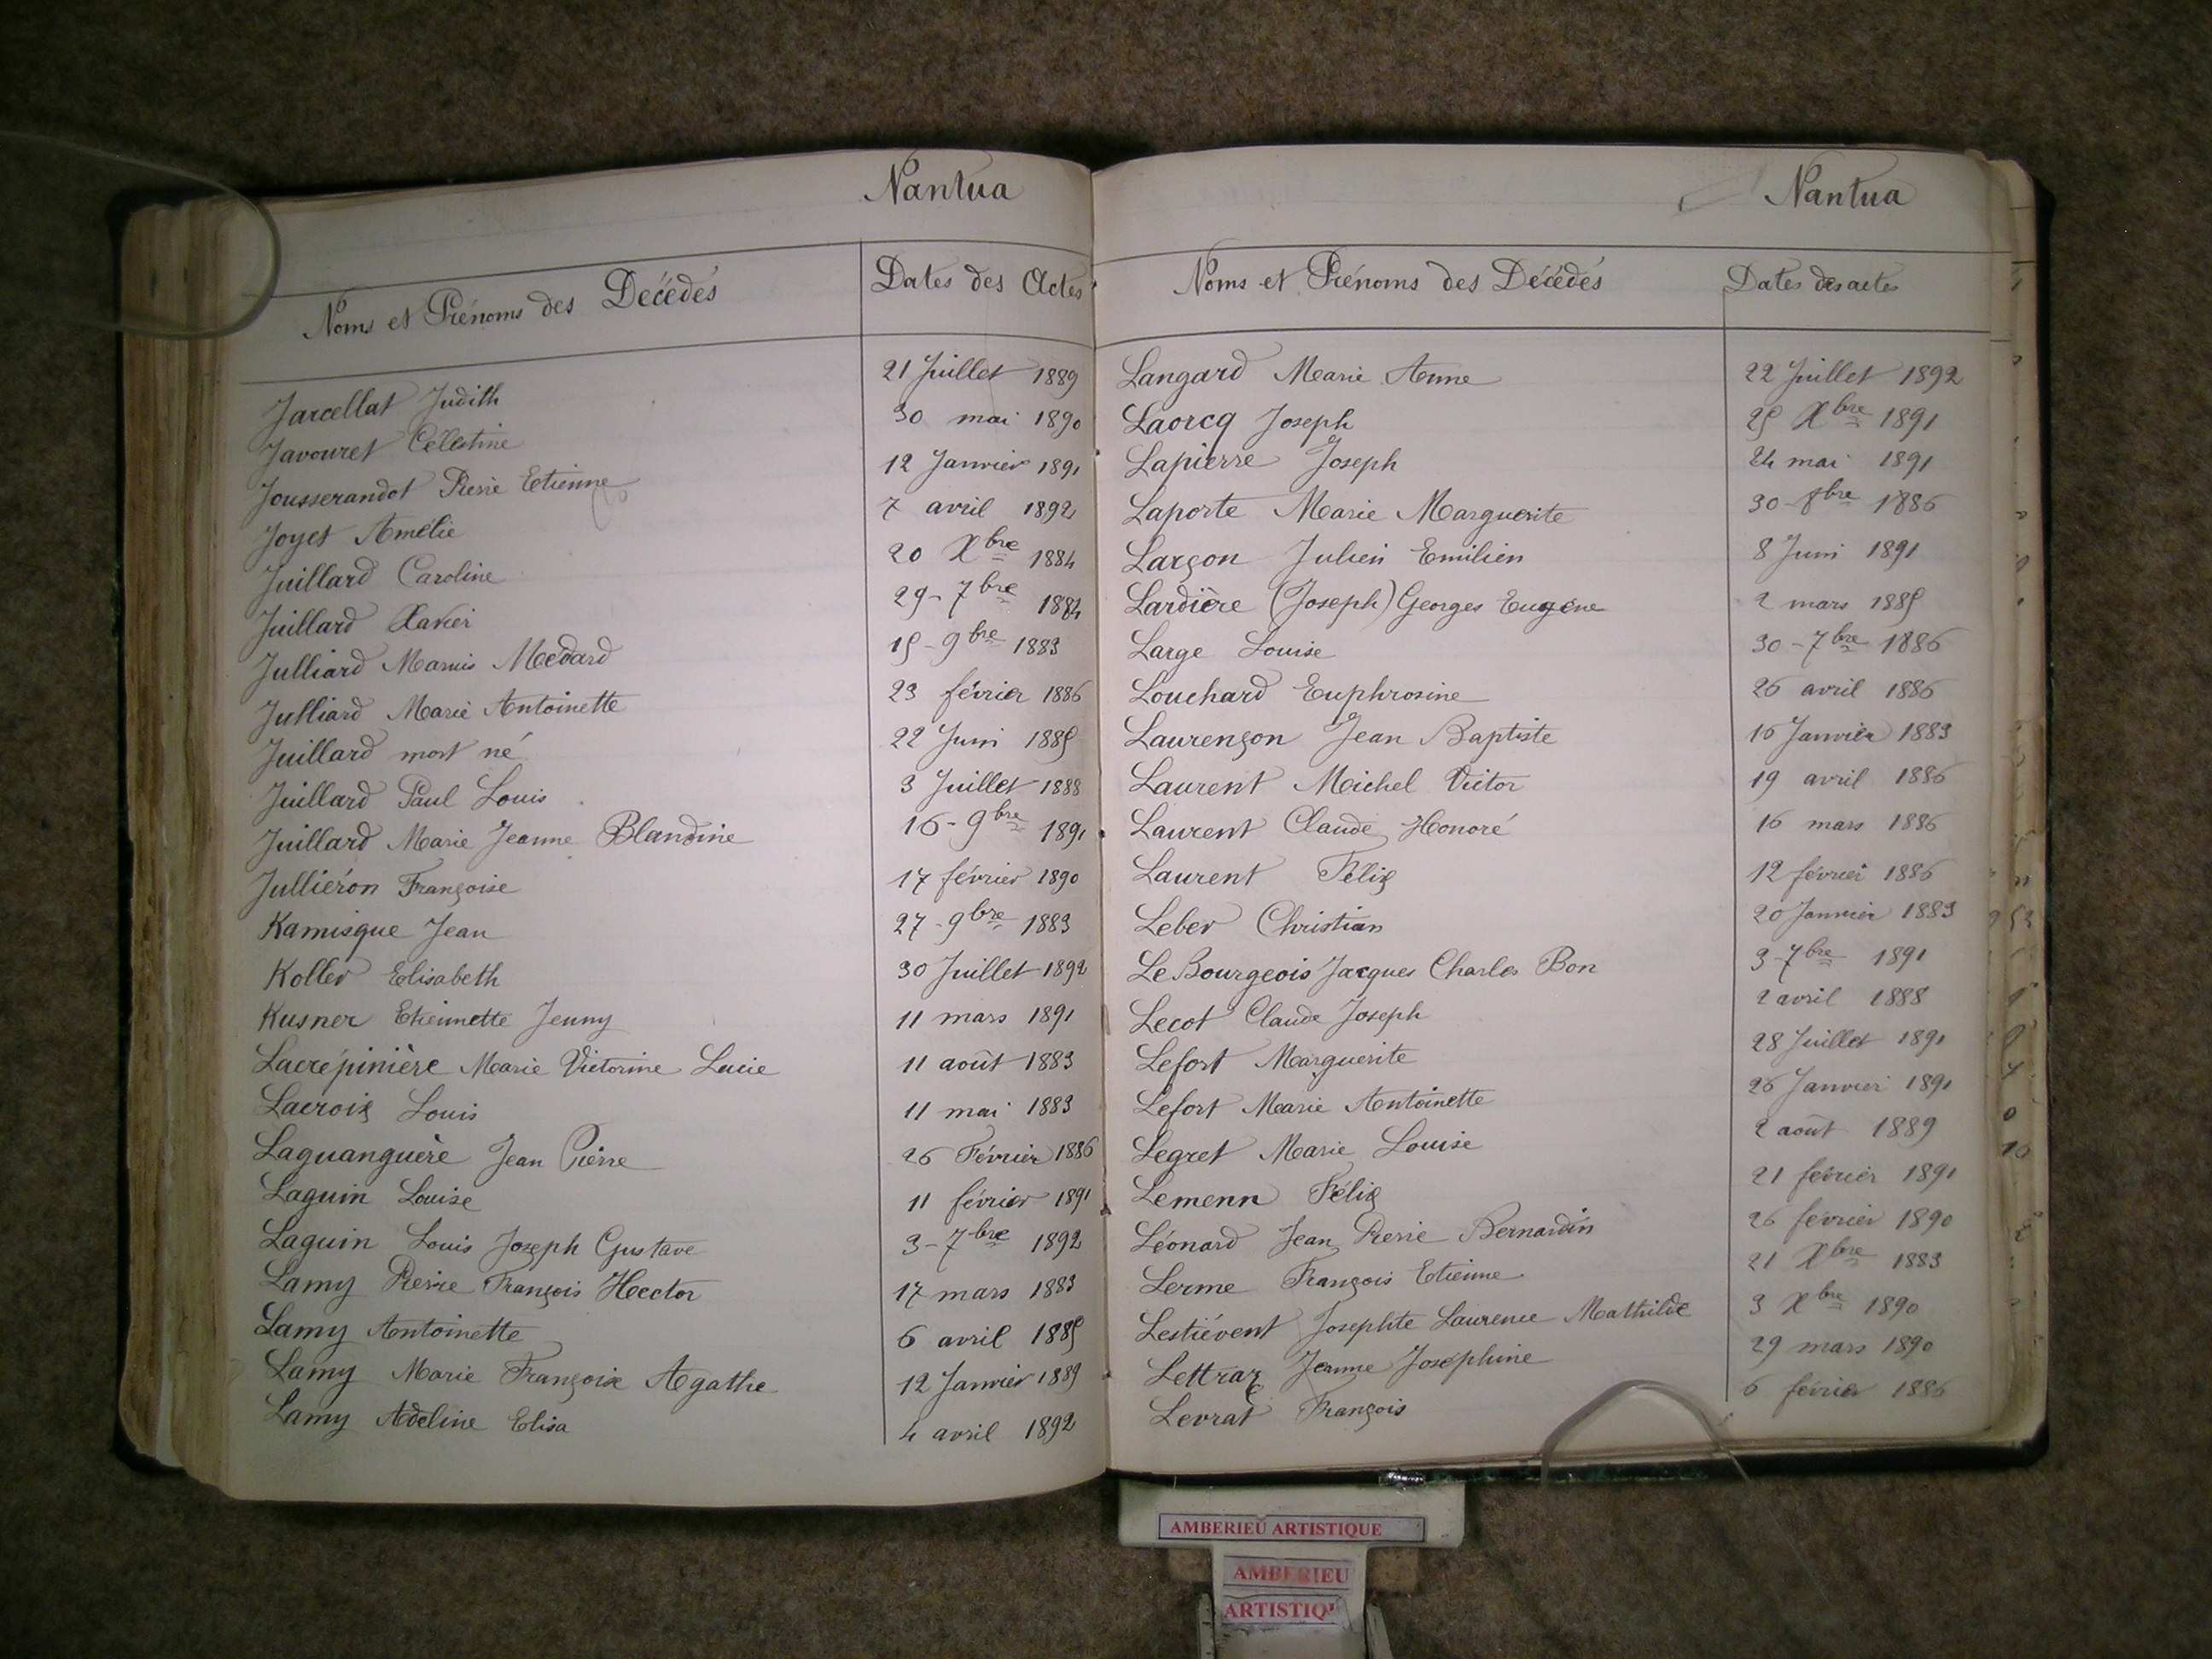 Nantua
Noms et Prénoms des Décédés Dates des Actes
Jarcellat Judith 21 Juillet 1889
Javouret Célestine 30 mai 1890
Jousserandot Pierre Etienne 12 Janvier 1891
Joyet Amélie 7 avril 1892
Juillard Caroline 20 Xbre 1884
Juillard Xavier 29-7bre 1884
Julliard Marius Médard 15-9bre 1883
Julliard Marie Antoinette 23 février 1886
Juillard mort né 22 Juin 1885
Juillard Paul Louis 3 Juillet 1888
Juillard Marie Jeanne Blandine 16-9bre 1891
Julliéron Françoise 17 février 1890
Kamisque Jean 27-9bre 1883
Koller Elisabeth 30 Juillet 1892
Kusner Etiennette Jenny 11 mars 1891
Lacrépinière Marie Victorine Lucie 11 août 1883
Lacroix Louis 11 mai 1883
Laguanguère Jean Pierre 26 Février 1886
Laguin Louise 11 février 1891
Laguin Louis Joseph Gustave 3-7bre 1892
Lamy Pierre François Hector 17 mars 1883
Lamy Antoinette 6 avril 1885
Lamy Marie Françoise Agathe 12 Janvier 1889
Lamy Adeline Elisa 4 avril 1892
Nantua
Noms et Prénoms des Décédés Dates des actes
Langard Marie Anne 22 Juillet 1892
Laorcq Joseph 25 Xbre 1891
Lapierre Joseph 24 mai 1891
Laporte Marie Marguerite 30-8bre 1886
Larçon Julien Emilien 8 Juin 1891
Lardière (Joseph) Georges Eugène 2 mars 1885
Large Louise 30-7bre 1886
Louchard Euphrosine 26 avril 1886
Laurençon Jean Baptiste 16 Janvier 1883
Laurent Michel Victor 19 avril 1886
Laurent Claude Honoré 16 mars 1886
Laurent Félix 12 février 1886
Leber Christian 20 Janvier 1883
Le Bourgeois Jacques Charles Bon 3-7bre 1891
Lecot Claude Joseph 2 avril 1888
Lefort Marguerite 28 Juillet 1891
Lefort Marie Antoinette 26 Janvier 1891
Legret Marie Louise 2 août 1889
Lemenn Félix 21 février 1891
Léonard Jean Pierre Bernardin 26 février 1890
Lerme François Etienne 21 Xbre 1883
Lestiévent Josephte Laurence Mathilde 3 Xbre 1890
Lettraz Jeanne Joséphine 29 mars 1890
Levrat François 6 février 1886
AMBERIEU ARTISTIQUE
AMBERIEU
ARTISTIQU